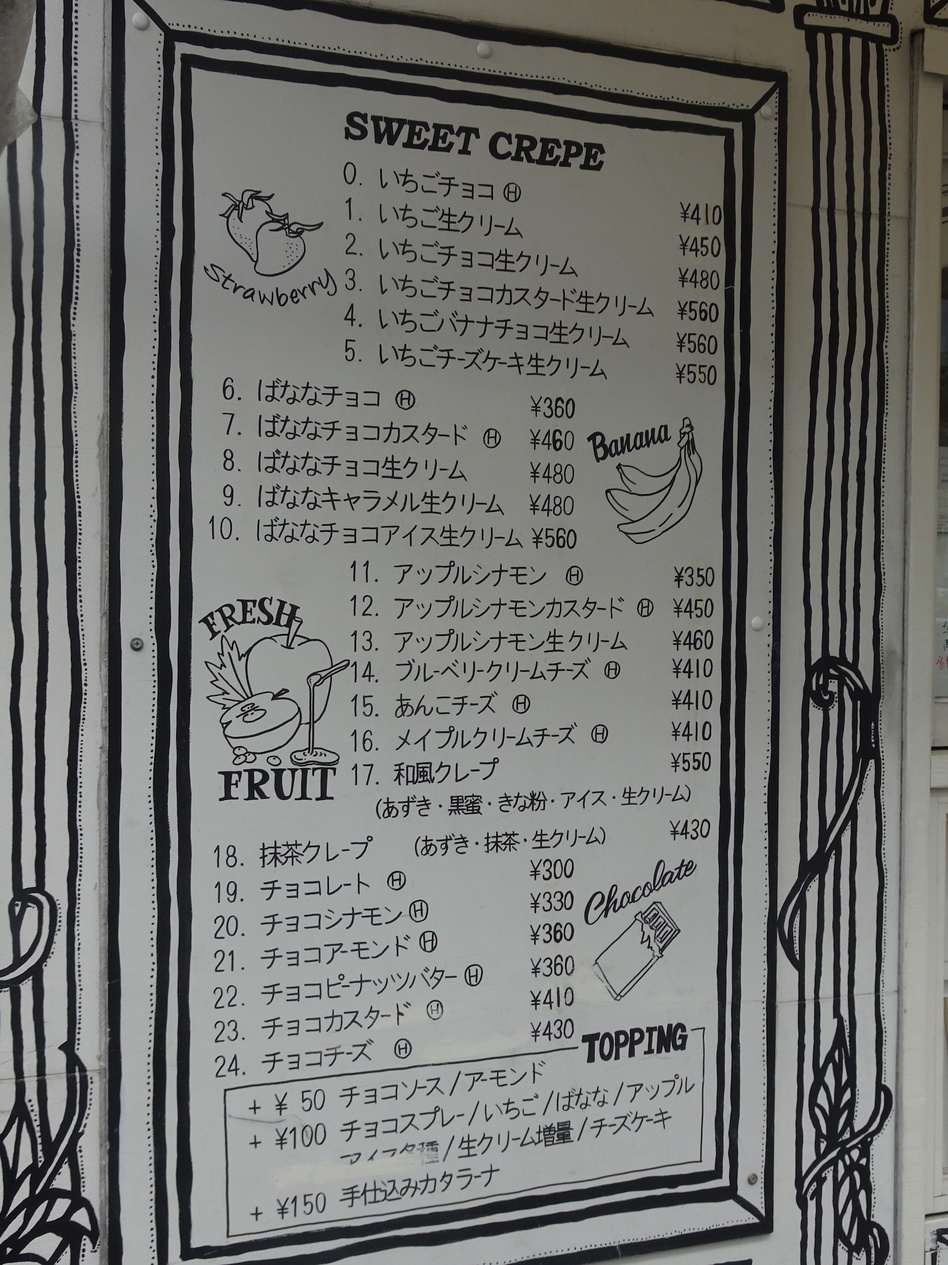 SWEET CREPE
0. いちごチョコ Ⓗ ¥410
1. いちご生クリーム ¥450
2. いちごチョコ生クリーム ¥480
3. いちごチョコカスタード生クリーム ¥560
4. いちごバナナチョコ生クリーム ¥560
5. いちごチーズケーキ生クリーム ¥550
Strawberry
6. ばななチョコ Ⓗ ¥360
7. ばななチョコカスタード Ⓗ ¥460
8. ばななチョコ生クリーム ¥480
9. ばななキャラメル生クリーム ¥480
10. ばななチョコアイス生クリーム ¥560
Banana
11. アップルシナモン Ⓗ ¥350
12. アップルシナモンカスタード Ⓗ ¥450
13. アップルシナモン生クリーム ¥460
14. ブルーベリークリームチーズ Ⓗ ¥410
15. あんこチーズ Ⓗ ¥410
16. メイプルクリームチーズ Ⓗ ¥410
17. 和風クレープ ¥550
(あずき・黒蜜・きな粉・アイス・生クリーム)
FRESH
FRUIT
18. 抹茶クレープ (あずき・抹茶・生クリーム) ¥430
19. チョコレート Ⓗ ¥300
20. チョコシナモン Ⓗ ¥330
21. チョコアーモンド Ⓗ ¥360
22. チョコピーナッツバター Ⓗ ¥360
23. チョコカスタード Ⓗ ¥410
24. チョコチーズ Ⓗ ¥430
Chocolate
TOPPING
+ ¥ 50 チョコソース/アーモンド
+ ¥100 チョコスプレー/いちご/ばなな/アップル
アイス各種/生クリーム増量/チーズケーキ
+ ¥150 手仕込みカタラーナ